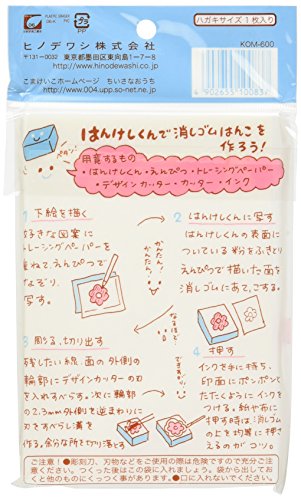 ハガキサイズ 1枚入り
PLASTIC ERASER
KOM-600
PP
ヒノデワシ株式会社
〒131-0032 東京都墨田区東向島1-
http://www.hinodewashi.com/
こまけいこホームページ ちいさなおうち
http://www.004.upp.so-net.ne.jp/
4902655100837
はんけしくんで消しゴムはんこを
作ろう!
ペタン!
用意するもの
・はんけしくん・えんぴつ・トレーシングペーパー
・デザインカッター・カッター・インク
1 下絵を描く
好きな図案に
トレーシングペーパーを
重ねて、えんぴつで
なぞり、
写す。
かんたん!
かんたん!
2 はんけしくんに写す
はんけしくんの表面に
ついている粉をふきとり
えんぴつで描いた面を
消しゴムにあて、こする。
3 彫る、切り出す
残したい線、面の外側の
輪郭にデザインカッターの刃
を入れすべらす。次に輪郭
の2、3mm外側を逆まわりに
刃をすべらし溝を
作る。余分な所を切り落とす
なるほど
できあがり!
4 押す
インクを手に持ち、
印面にポンポンと
たたくようにインクを
つける。紙や布に
押す時は、消しゴム
の上を均等に押さ
えるのがコツ。
ご注意! ●彫刻刀、刃物などをご使用の際は危険ですので充分ご注
意ください。つくった後はこの袋に入れましょう。袋から出してお
くと他のものにくっつく事があります。●口に入れないでください。